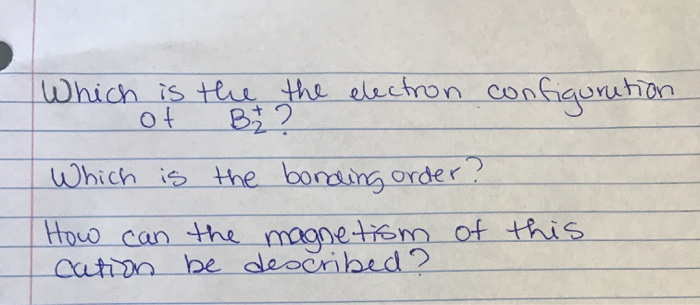 Which is the the electron configuration
of B₂⁺?
Which is the bonding order?
How can the magnetism of this
cation be described?